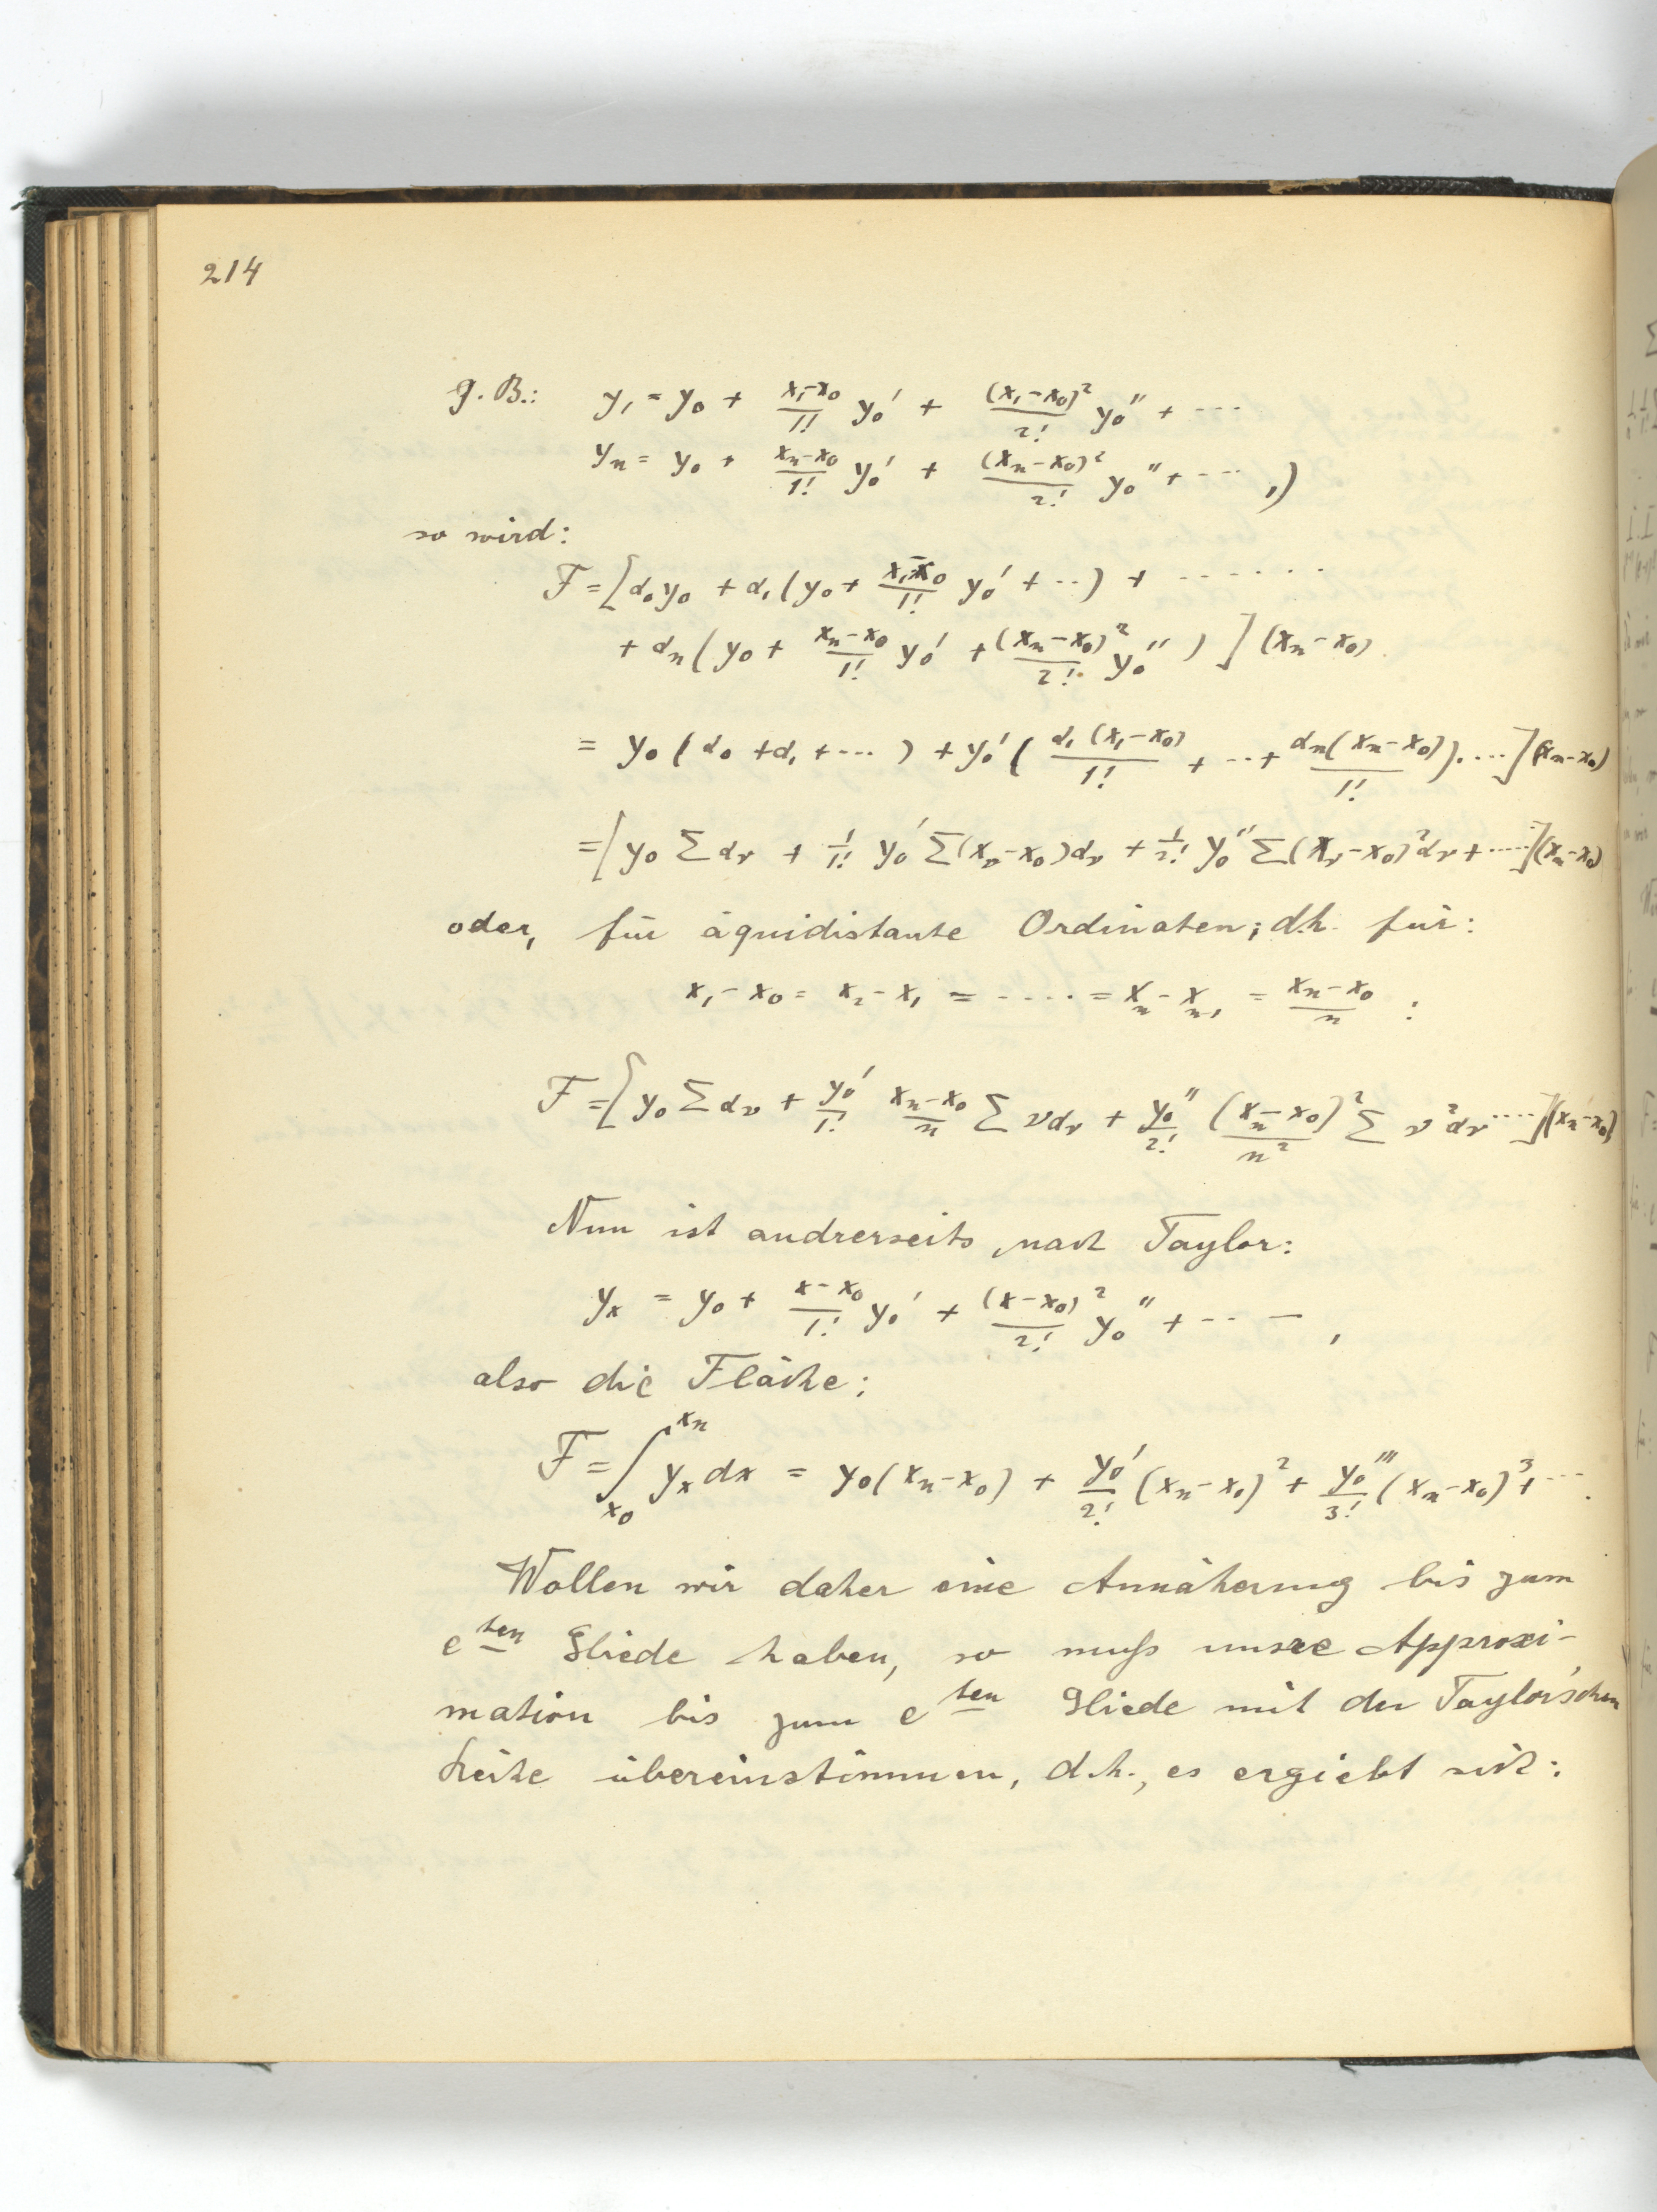 214
z.B.: y₁ = y₀ + (x₁-x₀)/1! y₀' + (x₁-x₀)²/2! y₀'' + ···
yₙ = y₀ + (xₙ-x₀)/1! y₀' + (xₙ-x₀)²/2! y₀'' + ··· ,)
so wird:
F = [α₀y₀ + α₁(y₀ + (x₁-x₀)/1! y₀' + ··) + ······
+ αₙ(y₀ + (xₙ-x₀)/1! y₀' + (xₙ-x₀)²/2! y₀'' )](xₙ-x₀)
= y₀(α₀ + α₁ + ···) + y₀'(α₁(x₁-x₀)/1! + ··· + αₙ(xₙ-x₀)/1!)····](xₙ-x₀)
= [y₀ Σαν + 1/1! y₀' Σ(xν-x₀)αν + 1/2! y₀'' Σ(xν-x₀)²αν + ····](xₙ-x₀)
oder, für äquidistante Ordinaten; d.h. für:
x₁-x₀ = x₂-x₁ = ···· = xₙ-xₙ₋₁ = (xₙ-x₀)/n :
F = [y₀ Σαν + y₀'/1! (xₙ-x₀)/n Σναν + y₀''/2! (xₙ-x₀)²/n² Σν²αν ····](xₙ-x₀)
Nun ist andrerseits, nach Taylor:
yₓ = y₀ + (x-x₀)/1! y₀' + (x-x₀)²/2! y₀'' + ··· ,
also die Fläche:
F = ∫ₓ₀^xₙ yₓ dx = y₀(xₙ-x₀) + y₀'/2! (xₙ-x₀)² + y₀'''/3! (xₙ-x₀)³ + ··· .
Wollen wir daher eine Annäherung bis zum
e^ten Gliede haben, so muß unsre Approxi-
mation bis zum e^ten Gliede mit der Taylor'schen
Reihe übereinstimmen, d.h., es ergiebt sich: